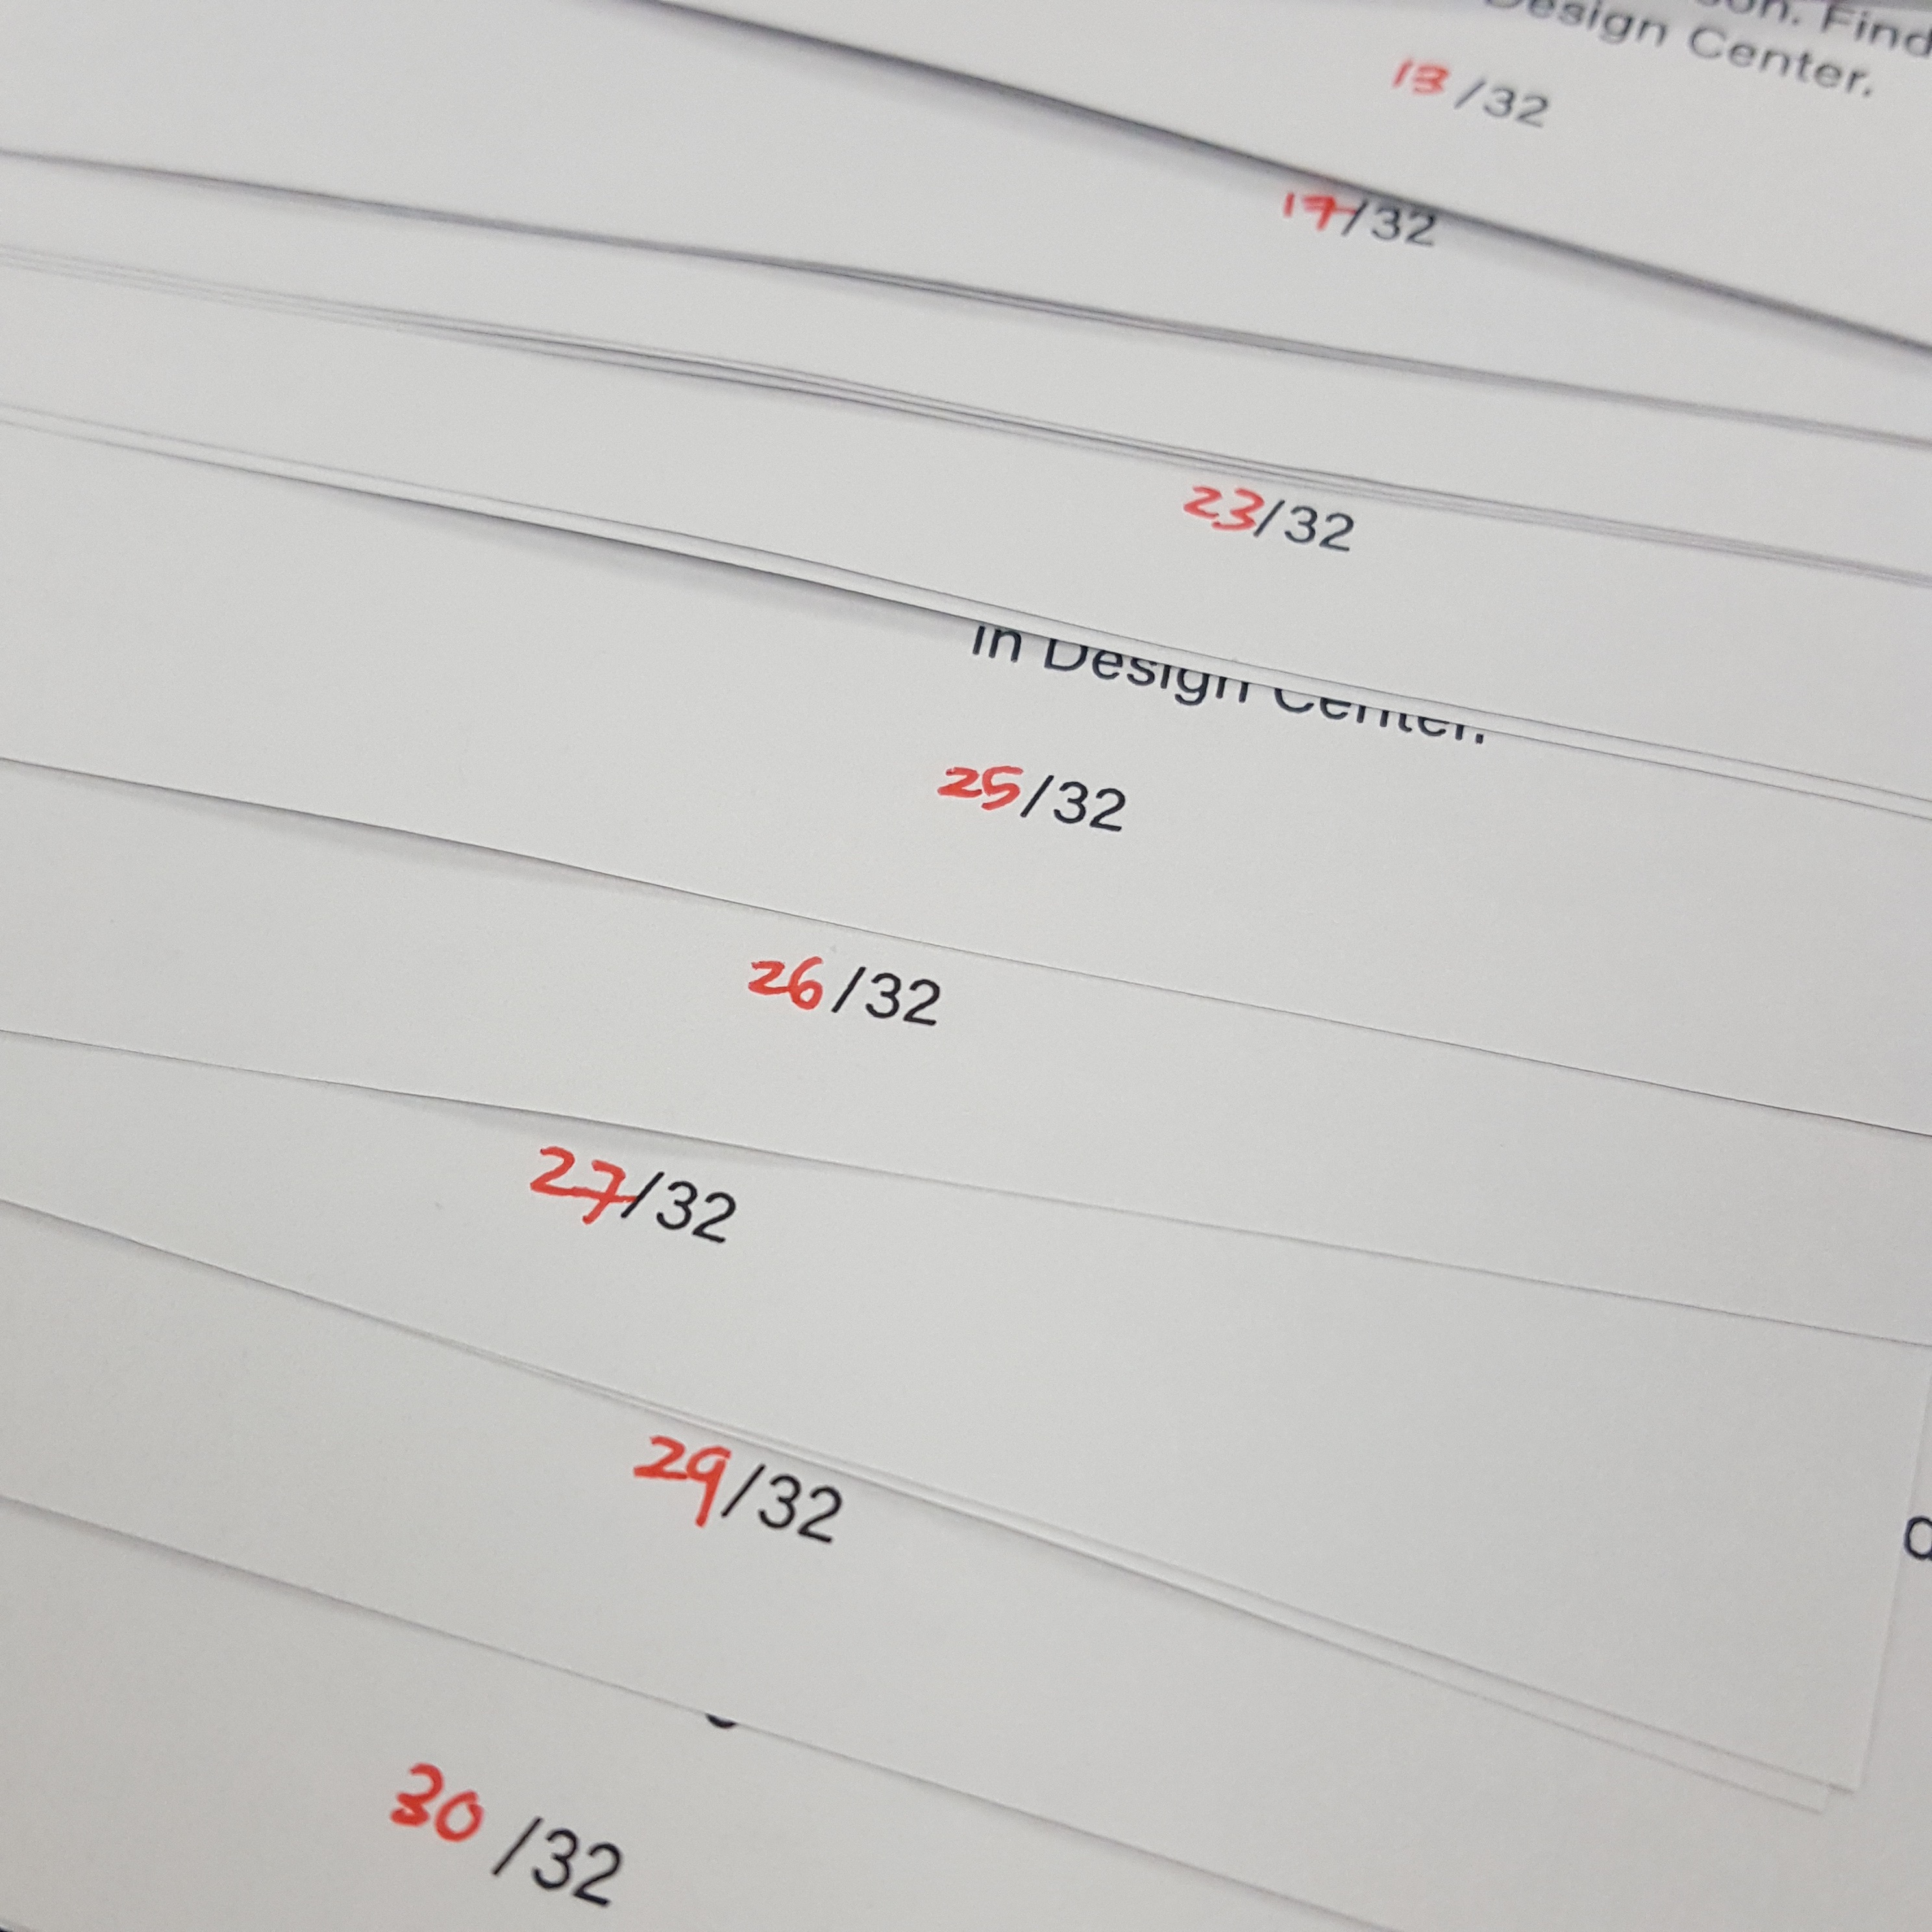 on. Find
Design Center.
13/32
17/32
23/32
in Design Center.
25/32
26/32
27/32
29/32
30/32